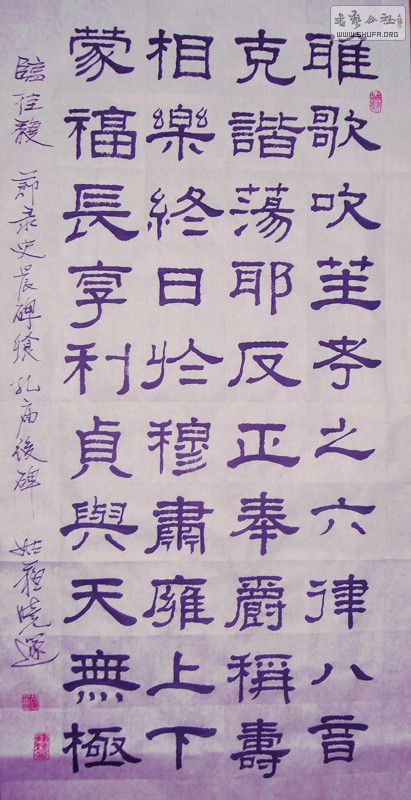 書藝公社
WWW.SHUFA.ORG
雅歌吹笙考之六律八音
克諧蕩耶反正奉爵稱壽
相樂終日於穆肅雍上下
蒙福長享利貞與天無極
臨 節录史晨碑飨孔庙後碑 姑蘇